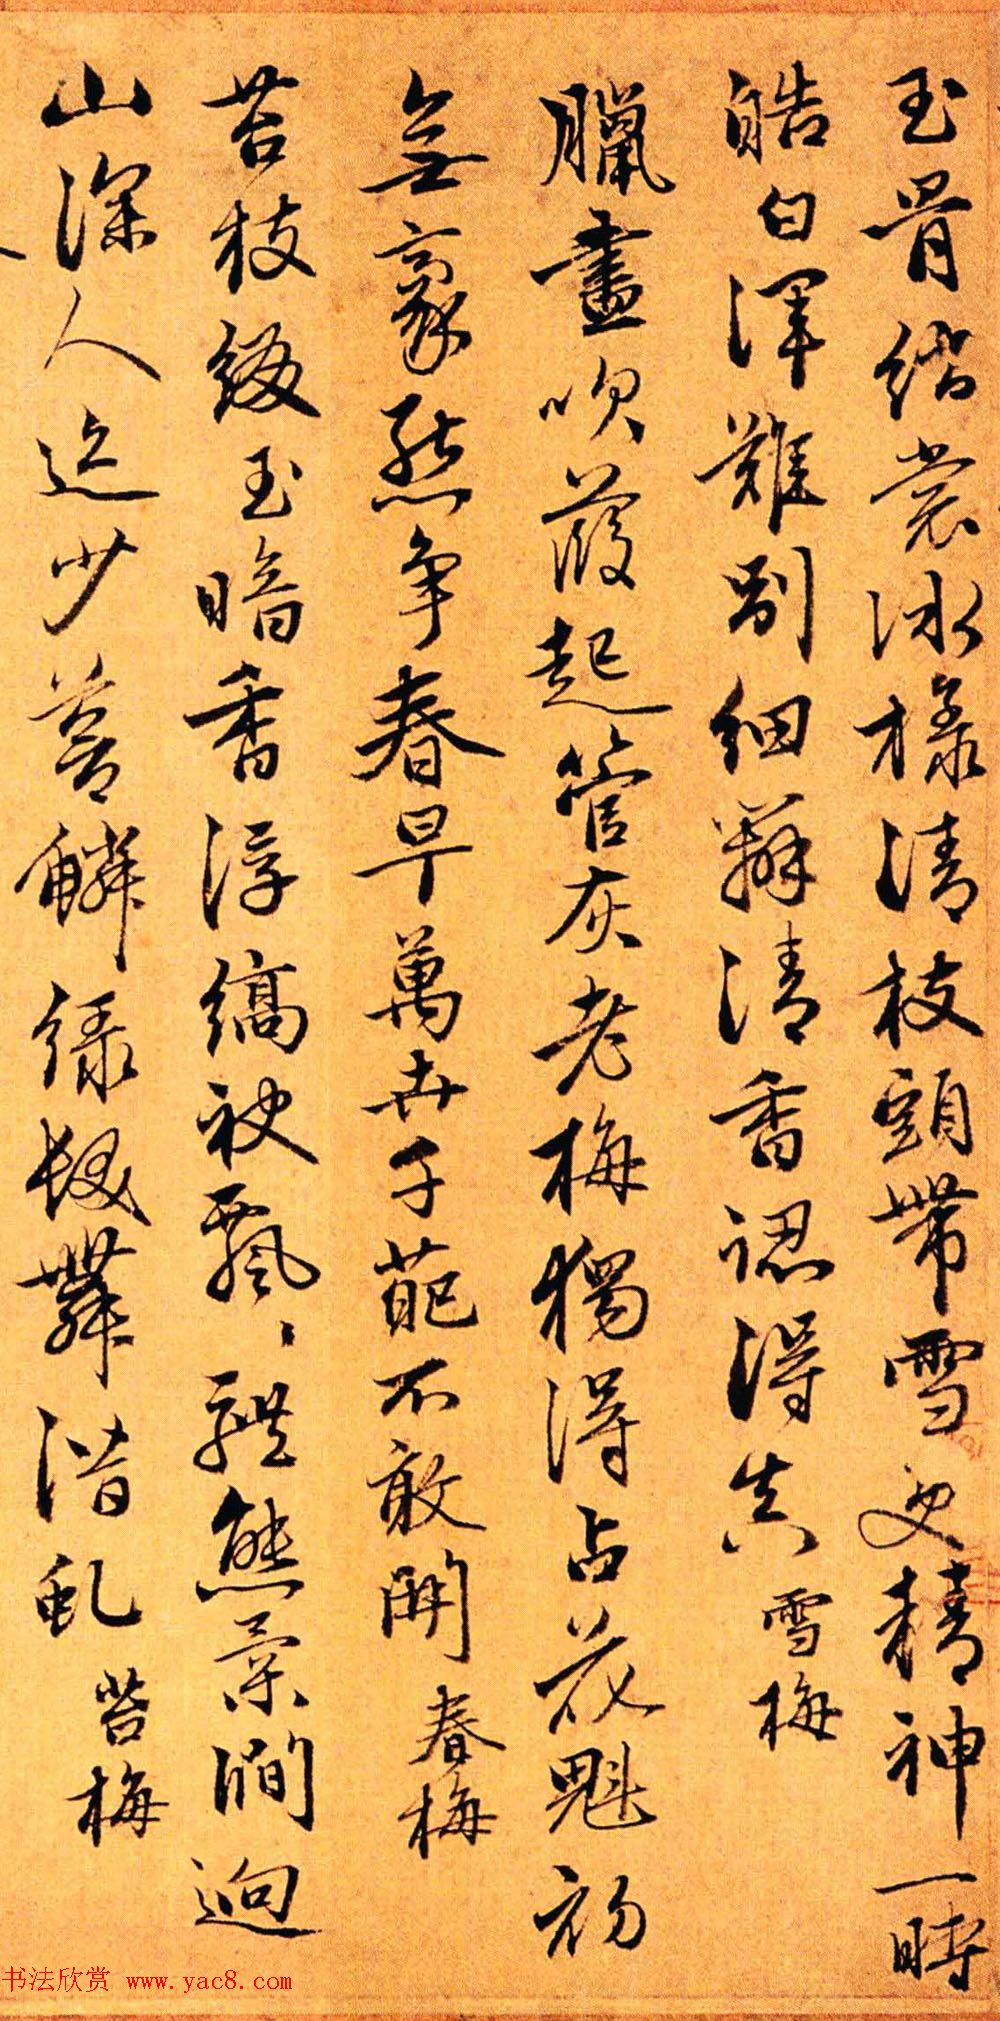 玉骨綃裳冰樣清枝頭帶雪更精神一時
皓白渾難别細辨清香認得真 雪梅
臘盡吹葭起管灰老梅獨得占花魁初
無豪熊争春早萬卉千葩不敢開 春梅
苔枝綴玉暗香浮縞袂飄飄體態柔澗迥
山深人迹少蒼鱗緑髮舞潛虬 苔梅
书法欣赏 www.yac8.com